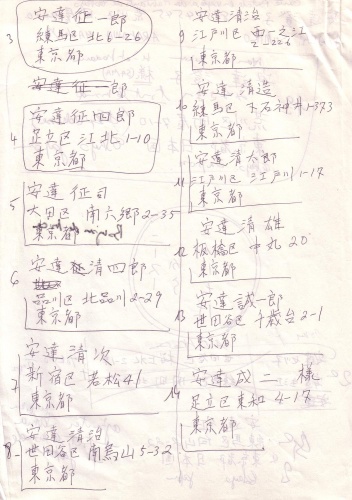 3 安達征一郎
練馬区北6-26
東京都
安達征一郎
4 安達征四郎
足立区江北1-10
東京都
5 安達征司
大田区 南六郷2-35
東京都
6 安達清四郎
品川区 北品川2-29
東京都
7 安達清次
新宿区若松41
東京都
8 安達清治
世田谷区南烏山5-32
東京都
9 安達清治
江戸川区 西一之江
2-226
東京都
10 安達 清造
練馬区 下石神井1-373
東京都
11 安達清太郎
江戸川区 江戸川1-17
東京都
12 安達 清雄
板橋区 中丸20
東京都
13 安達誠一郎
世田谷区 千歳台2-1
東京都
14 安達成二 様
足立区東和4-17
東京都